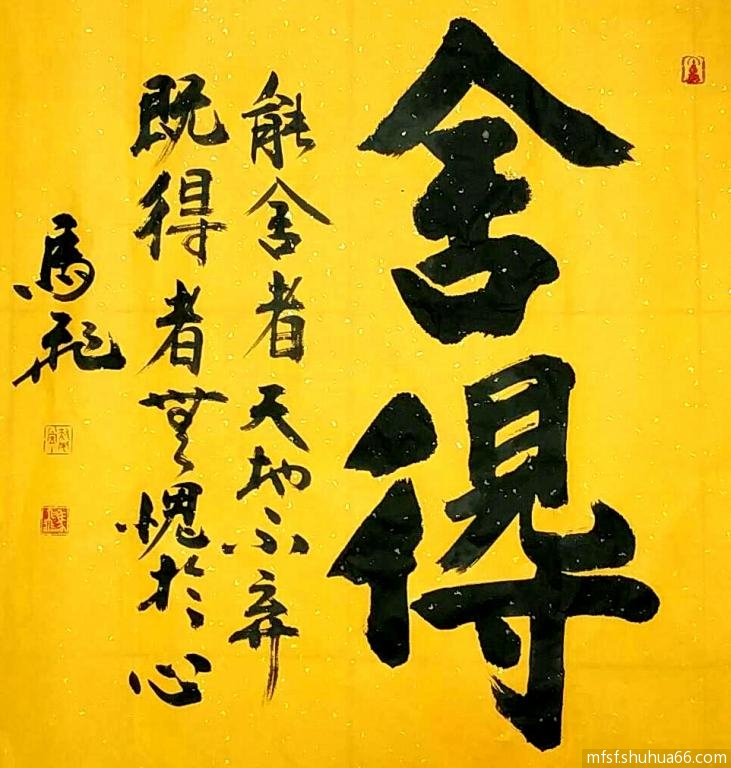 舍得
能舍者天地不弃
既得者無愧於心
馬飛
mfsfshuhua66.com